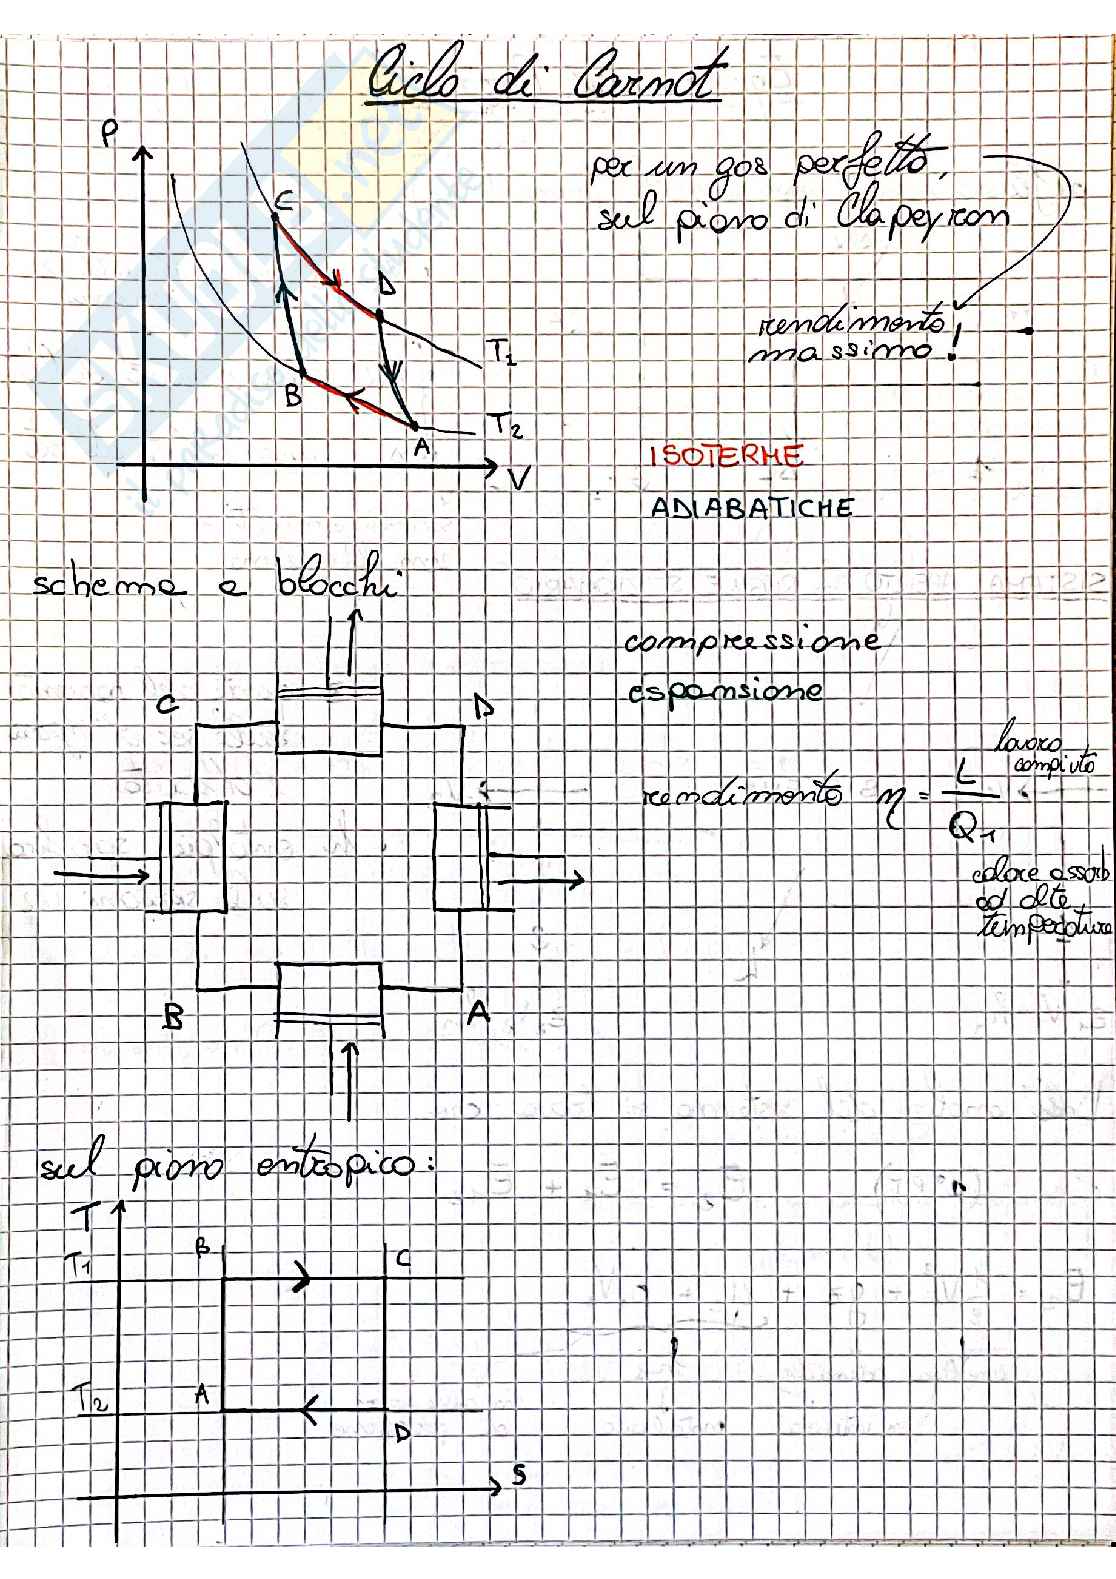 Ciclo di Carnot
P
per un gas perfetto,
sul piano di Clapeyron
C
D
rendimento
massimo!
T1
B
T2
A
V
ISOTERME
ADIABATICHE
schema a blocchi
compressione
espansione
C
D
lavoro
compiuto
rendimento η = L / Q1
calore assorb.
ad alte
temperature
B
A
sul piano entropico:
T
T1
B
C
T2
A
D
S